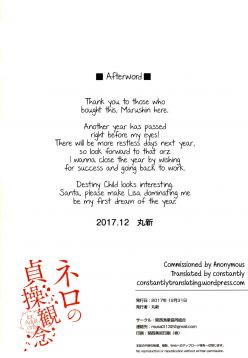 ■ Afterword ■
Thank you to those who
bought this, Marushin here.
Another year has passed
right before my eyes!
There will be more restless days next year,
so look forward to that orz
I wanna close the year by wishing
for success and going back to work.
Destiny Child looks interesting.
Santa, please make Lisa dominating me
be my first dream of the year.
2017.12 丸新
ネロの
貞操観念
Commissioned by Anonymous
Translated by constantly
constantlytranslating.wordpress.com
発行日：2017年12月31日
発行者：丸新
サークル：関西漁業協同組合
連絡先：
印刷：関西美術印刷（株）